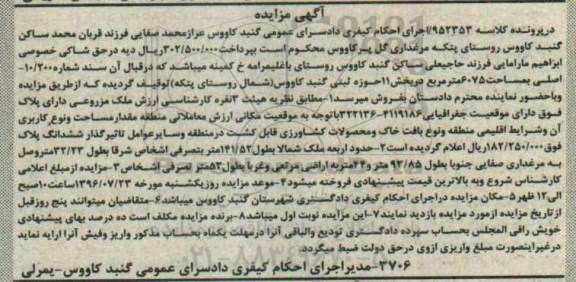 آگهی مزایده
درپرونده کلاسه ۹۵۲۳۵۳/اجرای احکام کیفری دادسرای عمومی گنبد کاووس عرازمحمد صفایی فرزند قربان محمد ساکن
گنبد کاووس روستای پتکه مرغداری گل پر کاووس محکوم است بپرداخت ۳۰۲/۵۰۰/۰۰۰ریال دیه درحق شاکی خصوصی
ابراهیم مارامایی فرزند حاجیعلی ساکن گنبد کاووس روستای باغلیمرامه خ کمینه میباشد که درقبال آن سند شماره ۱۰/۲۰۰-
اصلی بمساحت ۶۰۷۵مترمربع دربخش۱۱حوزه ثبتی گنبد کاووس(شمال روستای پتکه)توقیف گردیده که ازطریق مزایده
وباحضور نماینده محترم دادستان بفروش میرسد۱-مطابق نظریه هیئت ۳نفره کارشناسی ارزش ملک مزروعی دارای پلاک
فوق دارای موقعیت جغرافیایی ۴۱۱۹۱۸۶-۳۲۲۱۳۶باتوجه به موقعیت مکانی ارزش معاملاتی منطقه مقدارمساحت ونوع کاربری
آن وشرایط اقلیمی منطقه ونوع بافت خاک ومحصولات کشاورزی قابل کشت درمنطقه وسایرعوامل تاثیرگذار ششدانگ پلاک
فوق ۱۸۲/۲۵۰/۰۰۰ریال اعلام گردیده است۲-حدود اربعه ملک شمالا بطول۱۴۱/۵۲متر بتصرفی اشخاص شرقا بطول ۲۳/۳۲متروصل
به مرغداری صفایی جنوبا بطول ۹۳/۸۵ متر و۴۴متربه اراضی مرتعی وغربا بطول۵۳متر تصرفی اشخاص۳-مزایده ازمبلغ اعلامی
کارشناس شروع وبه بالاترین قیمت پیشنهادی فروخته میشود۴-موعد مزایده روزیکشنبه مورخه ۱۳۹۶/۰۷/۲۳ساعت۱۰صبح
الی۱۲ظهر۵-مکان مزایده دراجرای احکام کیفری دادگستری شهرستان گنبد کاووس میباشد۶-متقاضیان میتوانند پنج روزقبل
ازتاریخ مزایده ازمورد مزایده بازدید نمایند۷-این مزایده نوبت اول میباشد۸-برنده مزایده مکلف است ده درصد بهای پیشنهادی
خویش رافی المجلس بحساب سپرده دادگستری تودیع والباقی آنرا درمهلت یکماه بحساب مذکور واریز وفیش آنرا ارایه نماید
درغیراینصورت مبلغ واریزی ازوی درحق دولت ضبط میگردد.
۳۷۰۶-مدیراجرای احکام کیفری دادسرای عمومی گنبد کاووس-یمرلی